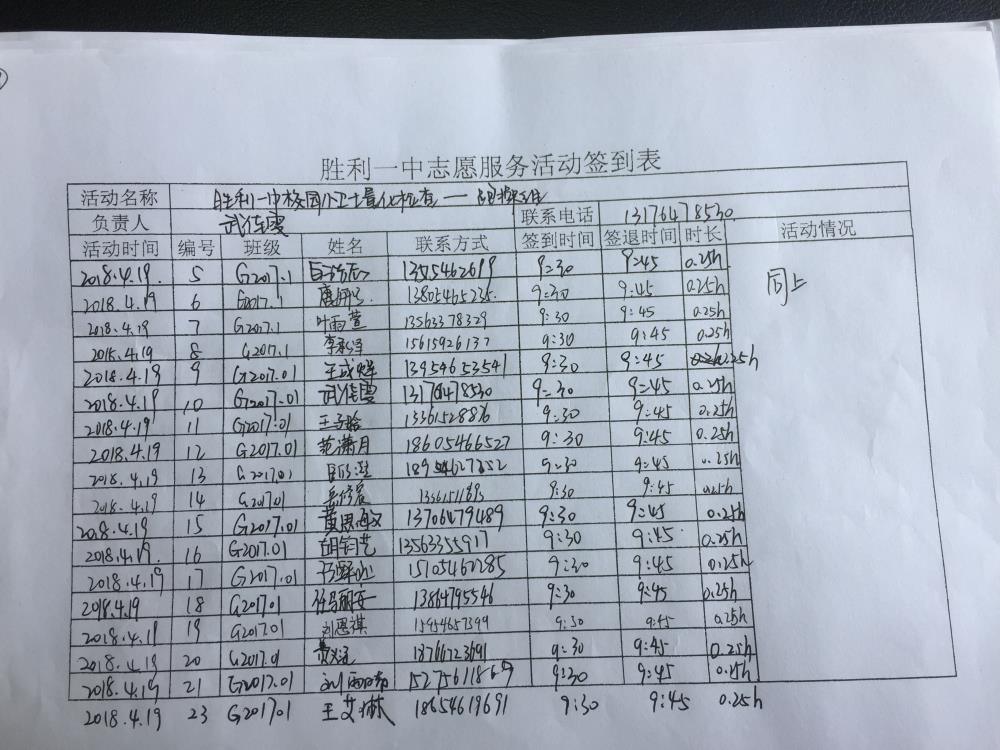 胜利一中志愿服务活动签到表
活动名称 胜利一中校园小卫士量化检查——
负责人 武佳雯 联系电话 13176478530
活动时间 编号 班级 姓名 联系方式 签到时间 签退时间 时长 活动情况
2018.4.19. 5 G2017.1 9:30 9:45 0.25h 同上
2018.4.19 6 G2017.1 13805465235. 9:30 9:45 0.25h
2018.4.19 7 G2017.1 叶雨萱 13563378329 9:30 9:45 0.25h
2018.4.19 8 G2017.1 李承泽 15615926137 9:30 9:45 0.25h
2018.4.19 9 G2017.01 13954653541 9:30 9:45 0.25h
2018.4.19 10 G2017.01 武佳雯 13176478530 9:30 9:45 0.25h
2018.4.19 11 G2017.01 9:30 9:45 0.25h
2018.4.19 12 G2017.01 范潇月 18605466527 9:30 9:45 0.25h
2018.4.19 13 G2017.01 9:30 9:45 0.25h
2018.4.19 14 G2017.01 9:30 9:45 0.25h
2018.4.19 15 G2017.01 黄思 13706479489 9:30 9:45 0.25h
2018.4.19. 16 G2017.01 胡钧艺 13563355917 9:30 9:45 0.25h
2018.4.19 17 G2017.01 15105462285 9:30 9:45 0.25h
2018.4.19 18 G2017.01 13864795546 9:30 9:45 0.25h
2018.4.19 19 G2017.01 刘恩祺 15954657399 9:30 9:45 0.25h
2018.4.19 20 G2017.01 18766723691 9:30 9:45 0.25h
2018.4.19 21 G2017.01 刘雨 15275611869 9:30 9:45 0.25h
2018.4.19 23 G2017.01 王艾琳 18654619691 9:30 9:45 0.25h